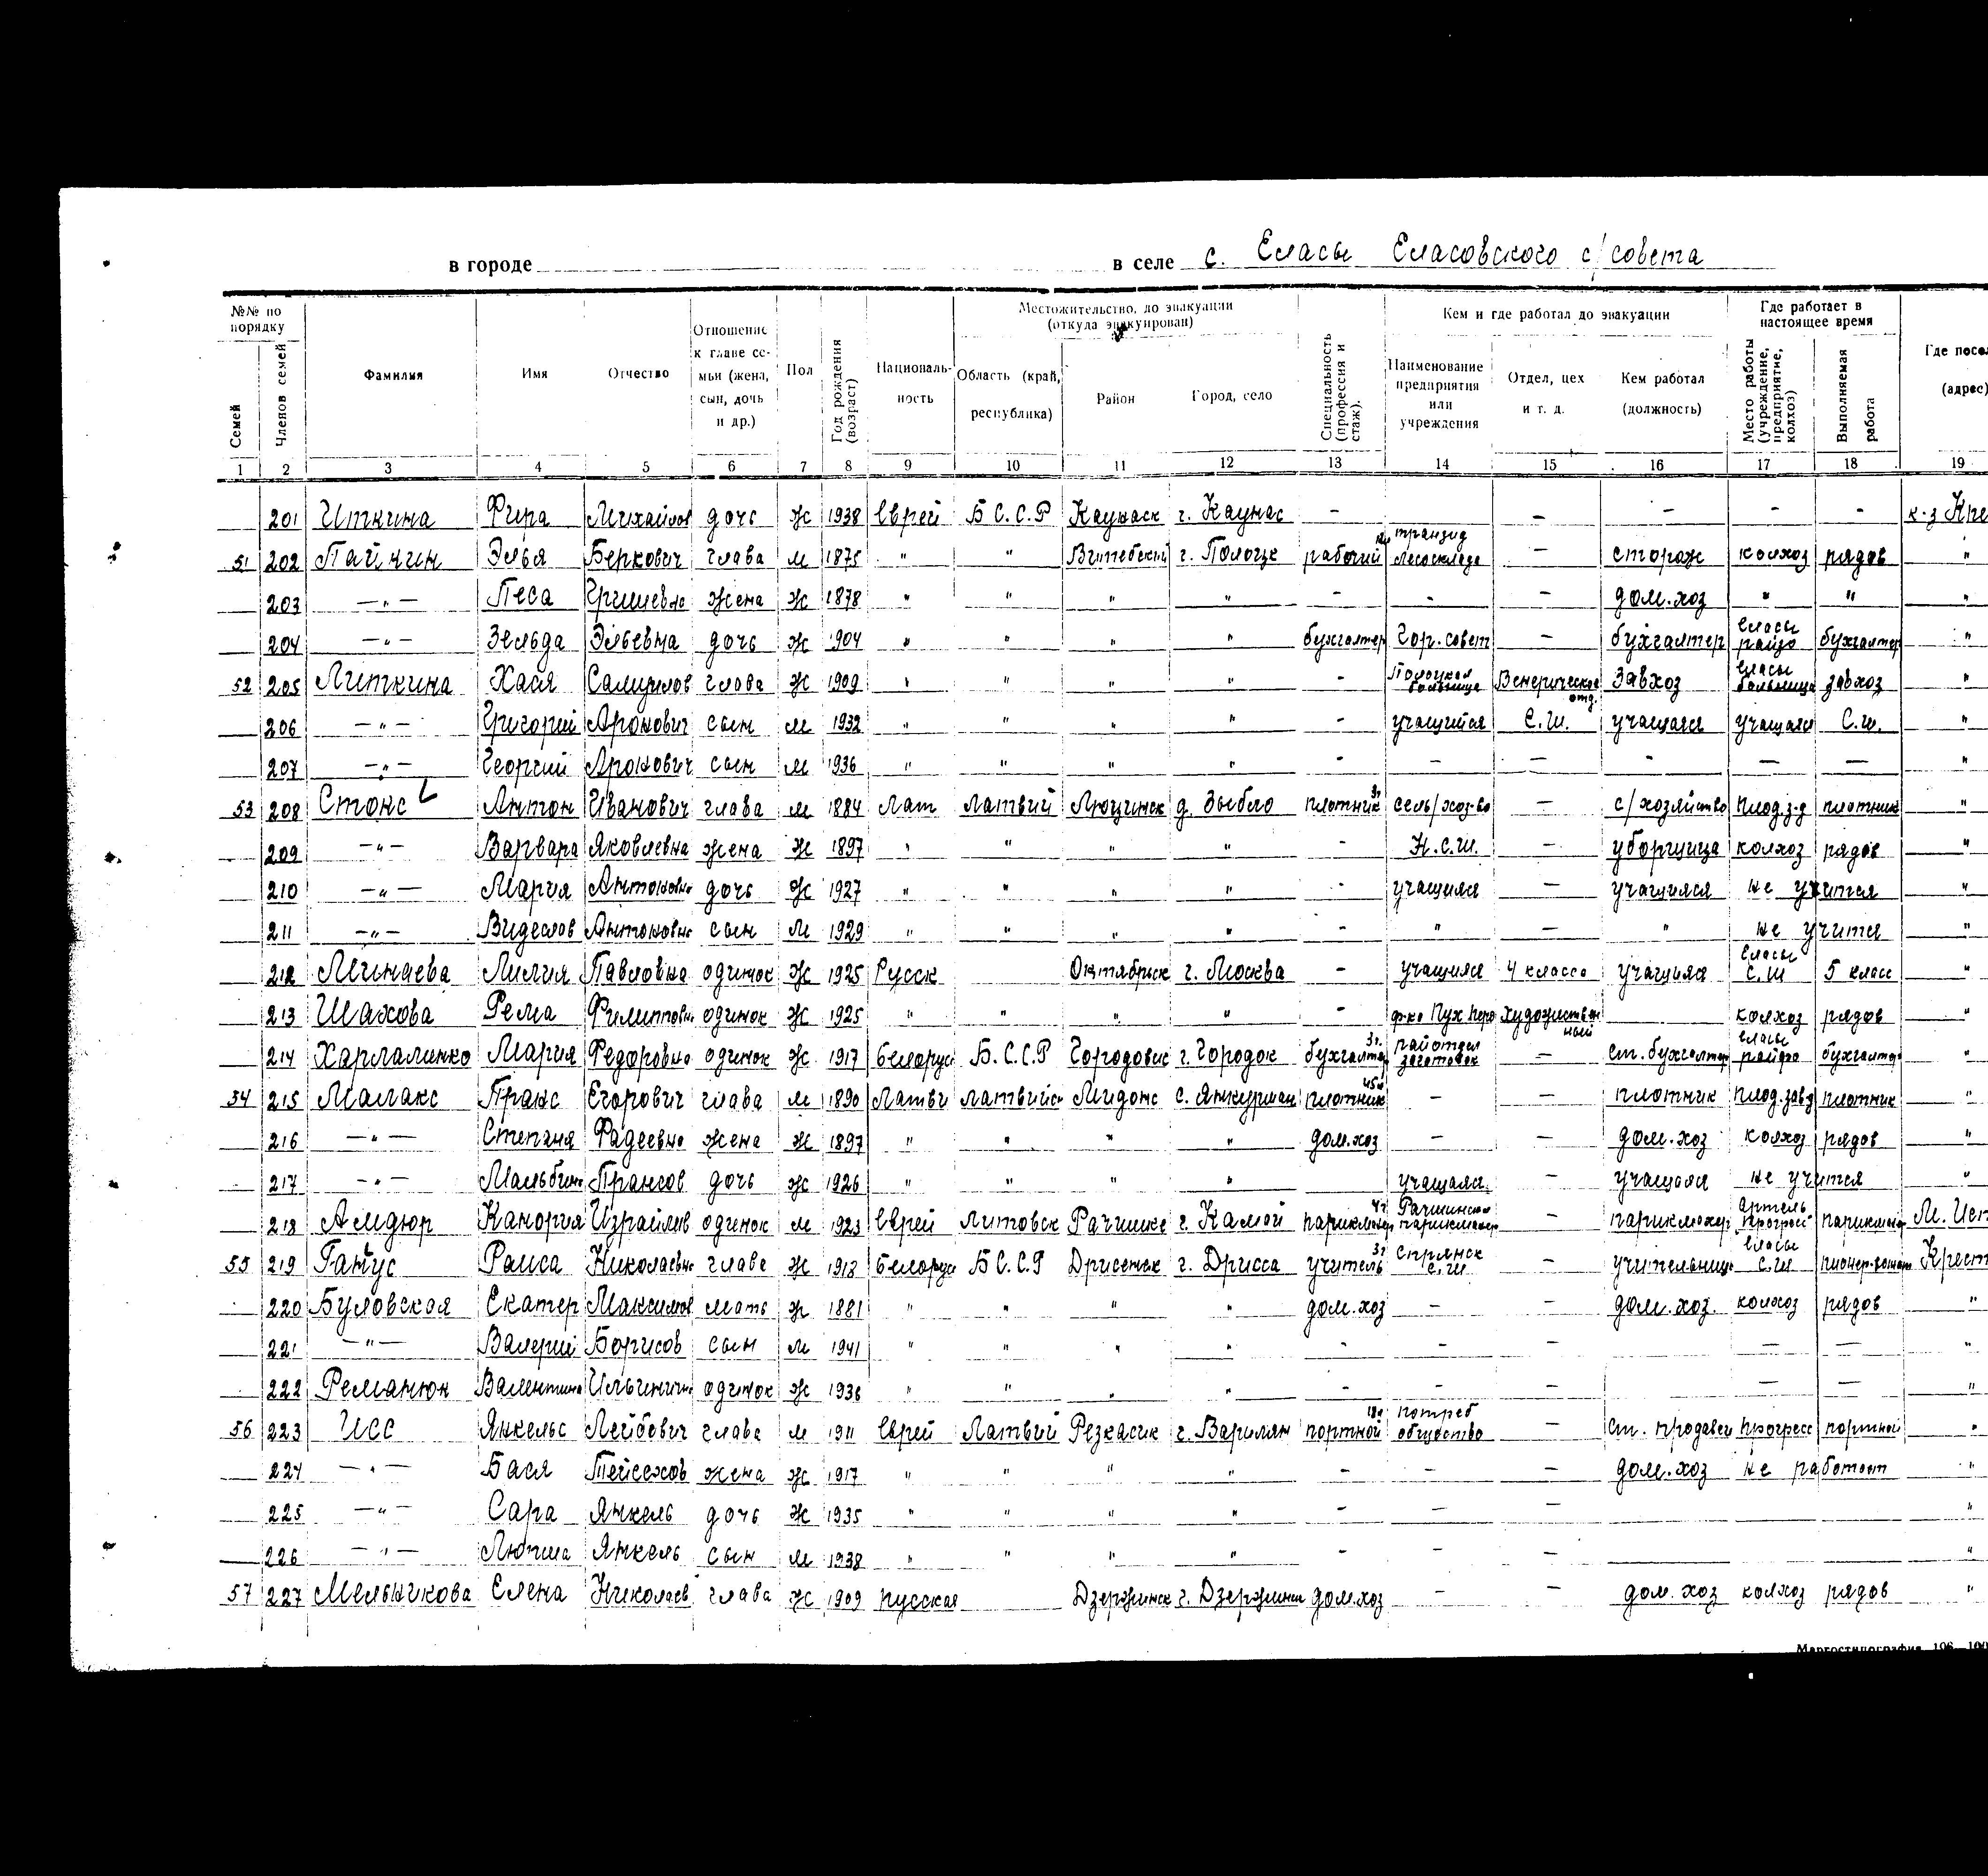 в городе в селе с. Еласы Еласовского с/совета
№№ по порядку Местожительство, до эвакуации (откуда эвакуирован) Кем и где работал до эвакуации Где работает в настоящее время
Семей Членов семей Фамилия Имя Отчество Отношение к главе семьи (жена, сын, дочь и др.) Пол Год рождения (возраст) Националь-ность Область (край, республика) Район Город, село Специальность (профессия и стаж). Наименование предприятия или учреждения Отдел, цех и т. д. Кем работал (должность) Место работы (учреждение, предприятие, колхоз) Выполняемая работа Где посел (адрес)
1 2 3 4 5 6 7 8 9 10 11 12 13 14 15 16 17 18 19
201 Иткина Фира Михайлов дочь Ж 1938 Еврей Б С.С.Р Каунаск г. Каунас - - - - - к-з Кре
51 202 Пайкин Элья Беркович глава м 1875 " " Витебский г. Полоцк рабочий транзид лесосклада - сторож колхоз рядов "
203 -"- Песа Гришевна жена Ж 1878 " " " " - - - дом.хоз " " "
204 -"- Зельда Эльевна дочь Ж 1904 " " " " бухгалтер Гор.совет - бухгалтер Еласы райзо бухгалтер "
52 205 Литкина Хася Самуилов глава Ж 1909 " " " " - Полоцкая больница Венерическое отд. завхоз Еласы больница завхоз "
206 -"- Григорий Аронович сын м 1932 " " " " - учащийся С.ш. учащаяся учащаяся С.ш. "
207 -"- Георгий Аронович сын м 1936 " " " " - - - - - - "
53 208 Стокс Антон Иванович глава м 1884 Лат Латвий Люцинск д. Зыбло плотник сель/хоз-во - с/хозяйство плод.з-д плотник "
209 -"- Варвара Яковлевна жена Ж 1897 " " " " - Н.с.ш. - уборщица колхоз рядов "
210 -"- Мария Антоновн дочь Ж 1927 " " " " - учащияся - учащияся не учится "
211 -"- Антонови сын м 1929 " " " " - " - " не учится "
212 Минаева Лилия Павловна одинок Ж 1925 Русск Октябрьск г. Москва - учащияся 4 класса учащияся Еласы С.Ш 5 класс "
213 Шахова Рема Филиппови одинок Ж 1925 " " " " - ф-ка Пух перо художествен ный колхоз рядов "
214 Харламинко Мария Федоровна одинок Ж 1917 белорус Б.С.С.Р Городовис г. Городок бухгалтер 3г. райотдел заготовок - ст. бухгалтер Еласы райфо бухгалтер "
54 215 Малакс Пранс Егорович глава м 1890 Латви латвийс Мидонс с. Янкурман плотник - - плотник плод.завд плотник "
216 -"- Степаня Фадеевна жена Ж 1897 " " " " дом.хоз - - дом.хоз колхоз рядов "
217 -"- Мальбин Прансов дочь Ж 1926 " " " " учащаяся. - учащаяся не учится "
218 Амдюр Канория Израйлев одинок м 1923 Еврей Литовск Рачишке г. Камой парикмахер Рачишинская парикмахер - парикмахер артель прогресс парикмахер М. Чер
55 219 Ганус Раиса Николаевна глава Ж 1918 белорус Б.С.С.Р Дрисенск г. Дрисса учитель 3г Спрянск с.ш - учительница Еласы с.ш пионер.вожат Крест
220 Буловская Екатер Максимов мать Ж 1881 " " " " дом.хоз - - дом.хоз. колхоз рядов "
221 -"- Валерий Борисов сын м 1941 " " " " - - - - - "
222 Романюк Валентина Ильинична одинок Ж 1936 " " " " - - - - - "
56 223 Исс Янкельс Лейбович глава м 1911 Еврей Латвий Резкасик г. Варилян портной потреб общество - ст. продавец прогресс портной "
224 -"- Бася жена Ж 1917 " " " " - - - дом.хоз не работает "
225 -"- Сара Янкель дочь Ж 1935 " " " " - - - "
226 -"- Люпша Янкель сын м 1938 " " " " - - - "
57 227 Мельникова Елена Николаев глава Ж 1909 русская Дзержинск г. Дзержинск дом.хоз - - дом.хоз колхоз рядов "
Маргостипография 196—100